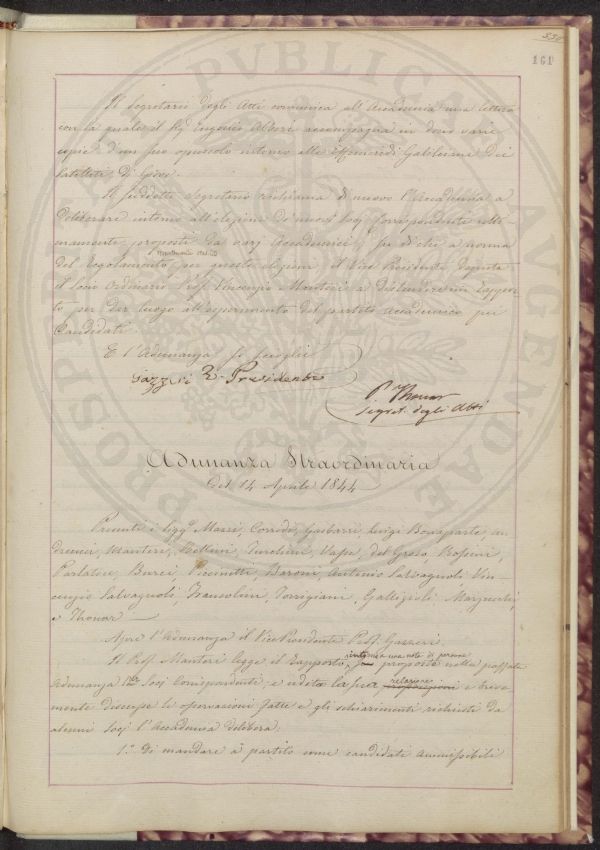 330
161
Il Segretario degli Atti comunica all'Accademia una lettera
con la quale il Sig. Eugenio Albèri accompagna in dono varie
copie d'un suo opuscolo intorno alle Effemeridi Galileiane dei
Satelliti di Giove.
Il suddetto Segretario richiama di nuovo l'Accademia a
deliberare intorno all'elezione di nuovi Socj Corrispondenti ulti-
mamente proposti da varj Accademici; su di che a norma
del Regolamento per queste elezioni, il Vice Presidente deputa
il Socio Ordinario Prof. Vincenzio Manteri a distendere un Rappor-
to per dar luogo all'esperimento del partito accademico pei
Candidati.
E l'Adunanza si scioglie
Gazzeri V. Presidente
P. Thouar
Segret. degli Atti
Adunanza Straordinaria
Del 14 Aprile 1844
Presenti i Sigg.ri Corridi, Gasbarri, Luigi Bonaparte, An-
dreucci, Manteri, Bettini, Turchini, Del Greco, Rossini,
Parlatore, Burci, Piccinetti, Baroni, Antonio Salvagnoli, Vin-
cenzio Salvagnoli, Franceschini, Torrigiani, Gallizioli, Marzucchi,
e Thouar —
Apre l'Adunanza il Vice Presidente Prof. Gazzeri.
intorno a una nota di persone
Il Prof. Manteri legge il Rapporto proposte nella passata
relazione
Adunanza per Socj Corrispondenti, e udita la sua e breve-
mente discusse le osservazioni fatte e gli schiarimenti richiesti da
alcuni Socj l'Accademia delibera.
1.° Di mandare a partito come candidati ammissibili